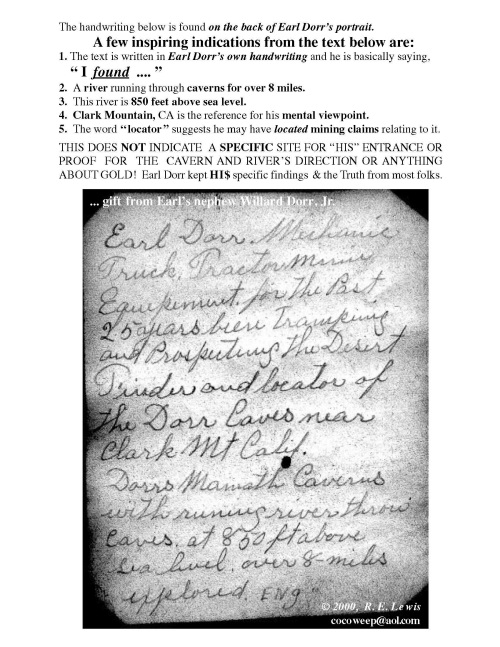 The handwriting below is found on the back of Earl Dorr's portrait.
A few inspiring indications from the text below are:
1. The text is written in Earl Dorr's own handwriting and he is basically saying,
“ I found .... ”
2. A river running through caverns for over 8 miles.
3. This river is 850 feet above sea level.
4. Clark Mountain, CA is the reference for his mental viewpoint.
5. The word “locator” suggests he may have located mining claims relating to it.
THIS DOES NOT INDICATE A SPECIFIC SITE FOR “HIS” ENTRANCE OR
PROOF FOR THE CAVERN AND RIVER'S DIRECTION OR ANYTHING
ABOUT GOLD! Earl Dorr kept HI$ specific findings & the Truth from most folks.
... gift from Earl's nephew Willard Dorr, Jr.
Earl Dorr. Mechanic
Truck, Tractor Mining
Equipenment, for the Past
25 years been Trampeing
and Prospecting the Desert
Finder and locator of
the Dorr Caves near
Clark Mt Calif.
Dorrs Mamath Caverns
with runing river throw
Caves. at 850 ft above
sea livel. over 8-miles
explored. ENG.
© 2000, R. E. Lewis
cocoweep@aol.com